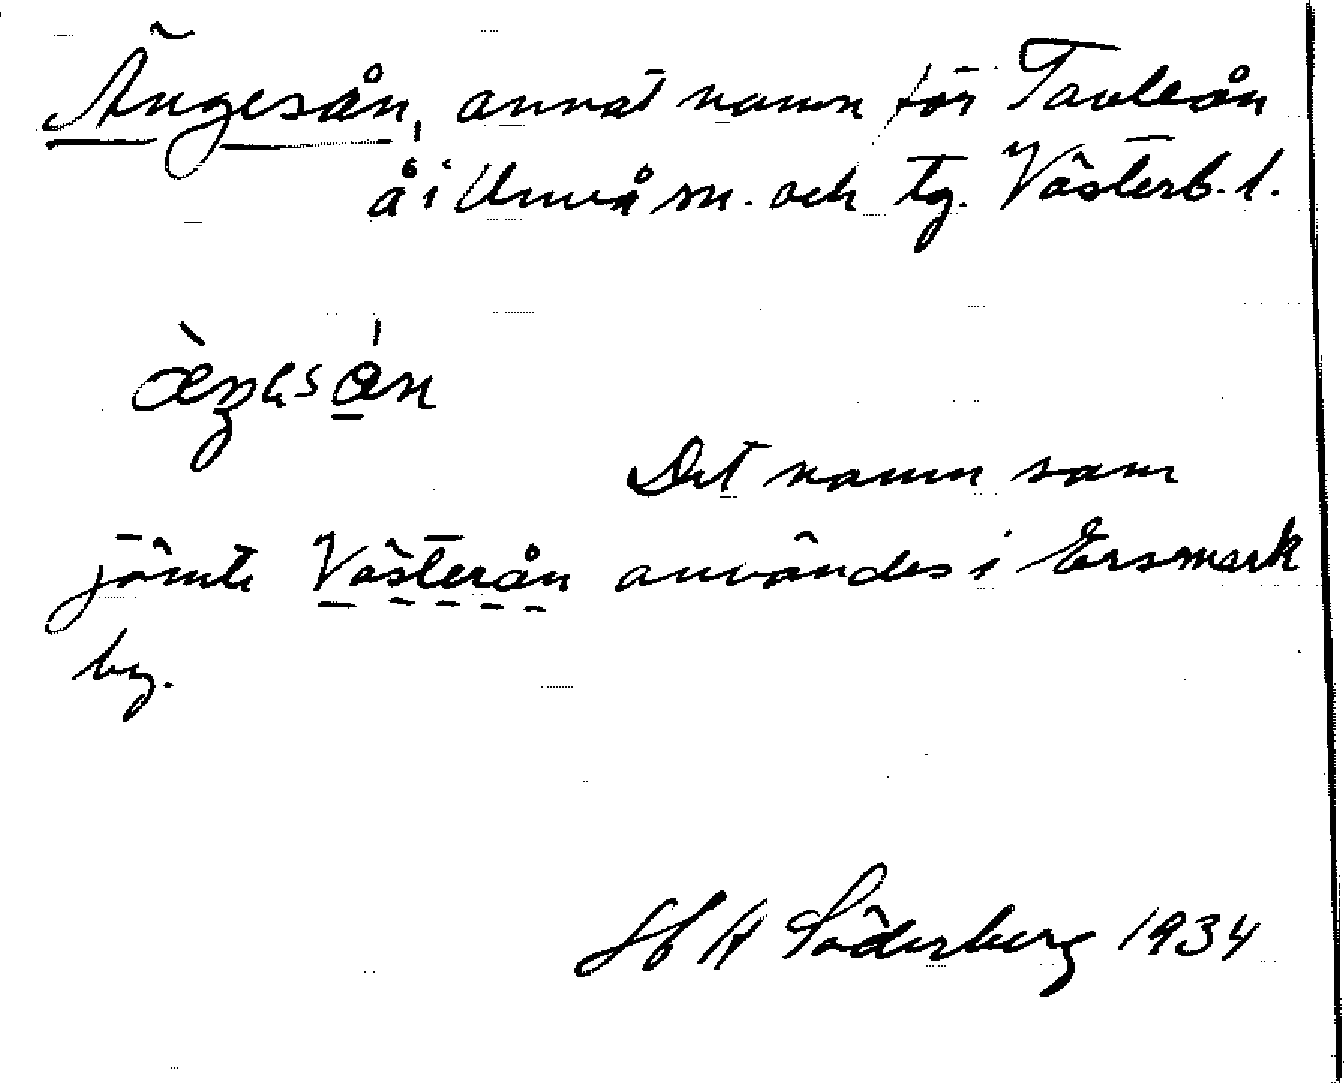 Ängesån, annat namn för Tavleån
å i Umeå sn. och tg. Västerb. l.
Det namn som
jämte Västerån användes i Ersmark
by.
H A Söderberg 1934